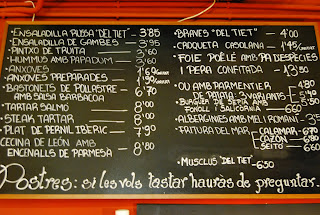 • ENSALADILLA RUSSA "DEL TIET" — 3'85
• ENSALADILLA DE GAMBES — 3'95
• PINTXO DE TRUITA — 3'60
• HUMMUS AMB PAPADUM — 3'60
• ANXOVES — 1'60
• ANXOVES PREPARADES — 1'90
• BASTONETS DE POLLASTRE AMB SALSA BARBACOA — 6'70
• TARTAR SALMÓ — 8'00
• STEAK TARTAR — 8'00
• PLAT DE PERNIL IBERIC — 7'90
CECINA DE LEÓN AMB ENCENALLS DE PARMESÀ — 8'80
• BRAVES "DEL TIET" — 4'00
• CROQUETA CASOLANA — 1'45
• FOIE POÊLÉ AMB PA D'ESPÈCIES I PERA CONFITADA — 13'50
• OU AMB PARMENTIER DE PATATA: 3 VARIANTS
• BURGER DE SEPIA AMB FONOLL I SALICORNIA
• ALBERGINIES AMB MEL I ROMANÍ
• FRITURA DEL MAR
CALAMAR — 6'70
CAZÓN — 6'80
SEITO — 6'60
• MUSCLUS "DEL TIET" — 6'50
Postres: si les vols tastar hauràs de preguntar.